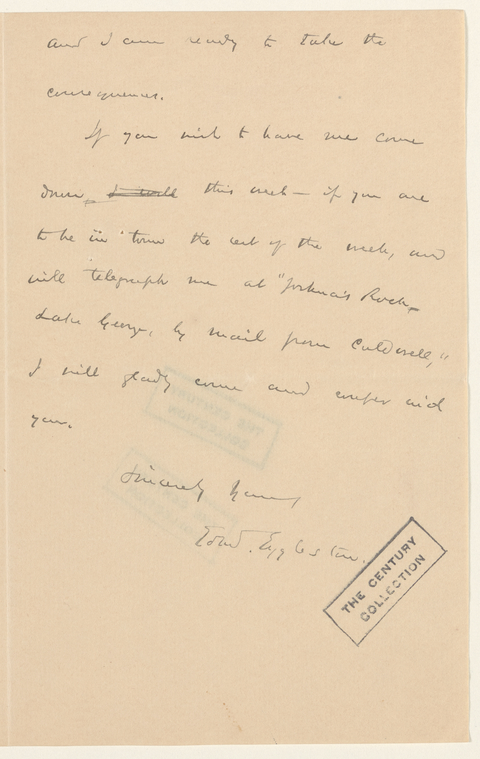 and I am ready to take the
consequences.
If you wish to have me come
down, I will this week — if you are
to be in town the rest of the week, and
will telegraph me at "Joshua's Rock,
Lake George, by mail from Caldwell,"
I will gladly come and confer with
you.
Sincerely Yours,
Edwd. Eggleston.
THE CENTURY
COLLECTION